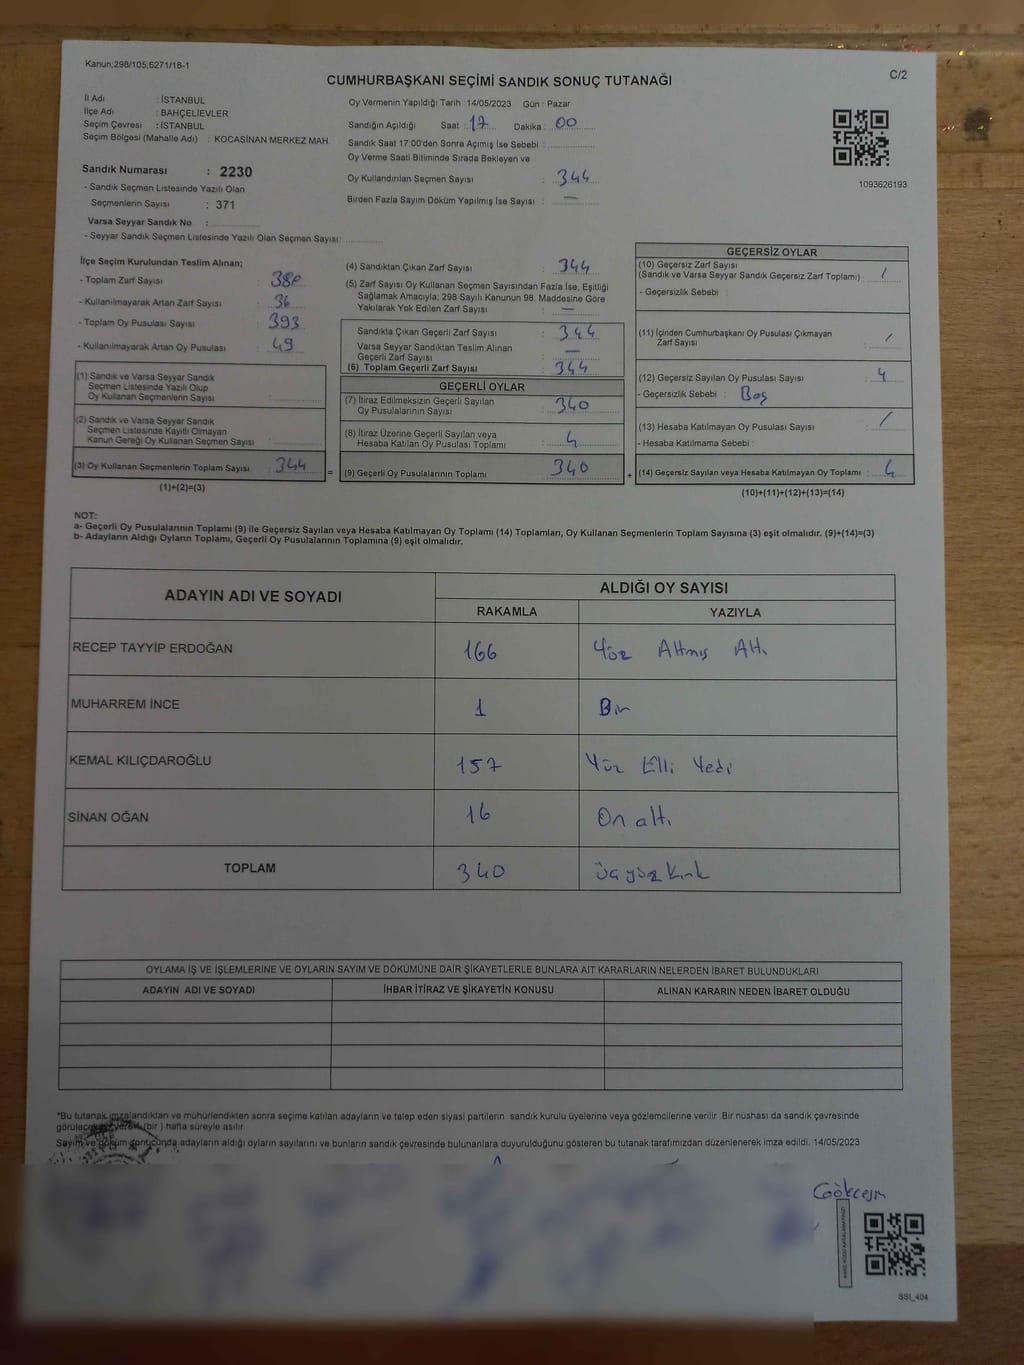 Kanun;298/105;6271/18-1
CUMHURBAŞKANI SEÇİMİ SANDIK SONUÇ TUTANAĞI
C/2
İl Adı : İSTANBUL
İlçe Adı : BAHÇELİEVLER
Seçim Çevresi : İSTANBUL
Seçim Bölgesi (Mahalle Adı) : KOCASİNAN MERKEZ MAH.
Sandık Numarası : 2230
- Sandık Seçmen Listesinde Yazılı Olan
Seçmenlerin Sayısı : 371
Varsa Seyyar Sandık No :
- Seyyar Sandık Seçmen Listesinde Yazılı Olan Seçmen Sayısı:
Oy Vermenin Yapıldığı Tarih : 14/05/2023 Gün : Pazar
Sandığın Açıldığı Saat : 17 Dakika : 00
Sandık Saat 17:00'den Sonra Açılmış İse Sebebi :
Oy Verme Saati Bitiminde Sırada Bekleyen ve
Oy Kullandırılan Seçmen Sayısı : 344
Birden Fazla Sayım Döküm Yapılmış İse Sayısı : —
1093626193
İlçe Seçim Kurulundan Teslim Alınan;
- Toplam Zarf Sayısı : 380
- Kullanılmayarak Artan Zarf Sayısı : 36
- Toplam Oy Pusulası Sayısı : 393
- Kullanılmayarak Artan Oy Pusulası : 49
(1) Sandık ve Varsa Seyyar Sandık
Seçmen Listesinde Yazılı Olup
Oy Kullanan Seçmenlerin Sayısı :
(2) Sandık ve Varsa Seyyar Sandık
Seçmen Listesinde Kayıtlı Olmayan
Kanun Gereği Oy Kullanan Seçmen Sayısı :
(3) Oy Kullanan Seçmenlerin Toplam Sayısı : 344
(1)+(2)=(3)
=
(4) Sandıktan Çıkan Zarf Sayısı : 344
(5) Zarf Sayısı Oy Kullanan Seçmen Sayısından Fazla İse, Eşitliği
Sağlamak Amacıyla, 298 Sayılı Kanunun 98. Maddesine Göre
Yakılarak Yok Edilen Zarf Sayısı : —
Sandıkta Çıkan Geçerli Zarf Sayısı : 344
Varsa Seyyar Sandıktan Teslim Alınan
Geçerli Zarf Sayısı : —
(6) Toplam Geçerli Zarf Sayısı : 344
GEÇERLİ OYLAR
(7) İtiraz Edilmeksizin Geçerli Sayılan
Oy Pusulalarının Sayısı : 340
(8) İtiraz Üzerine Geçerli Sayılan veya
Hesaba Katılan Oy Pusulası Toplamı : 4
(9) Geçerli Oy Pusulalarının Toplamı : 340
+
GEÇERSİZ OYLAR
(10) Geçersiz Zarf Sayısı
(Sandık ve Varsa Seyyar Sandık Geçersiz Zarf Toplamı) : /
- Geçersizlik Sebebi :
(11) İçinden Cumhurbaşkanı Oy Pusulası Çıkmayan
Zarf Sayısı : /
(12) Geçersiz Sayılan Oy Pusulası Sayısı : 4
- Geçersizlik Sebebi : Boş
(13) Hesaba Katılmayan Oy Pusulası Sayısı : /
- Hesaba Katılmama Sebebi :
(14) Geçersiz Sayılan veya Hesaba Katılmayan Oy Toplamı : 4
(10)+(11)+(12)+(13)=(14)
NOT:
a- Geçerli Oy Pusulalarının Toplamı (9) ile Geçersiz Sayılan veya Hesaba Katılmayan Oy Toplamı (14) Toplamları, Oy Kullanan Seçmenlerin Toplam Sayısına (3) eşit olmalıdır. (9)+(14)=(3)
b- Adayların Aldığı Oyların Toplamı, Geçerli Oy Pusulalarının Toplamına (9) eşit olmalıdır.
ADAYIN ADI VE SOYADI ALDIĞI OY SAYISI
RAKAMLA YAZIYLA
RECEP TAYYİP ERDOĞAN 166 Yüz Altmış Altı
MUHARREM İNCE 1 Bir
KEMAL KILIÇDAROĞLU 157 Yüz Elli Yedi
SİNAN OĞAN 16 On altı
TOPLAM 340 üçyüz kırk
OYLAMA İŞ VE İŞLEMLERİNE VE OYLARIN SAYIM VE DÖKÜMÜNE DAİR ŞİKAYETLERLE BUNLARA AİT KARARLARIN NELERDEN İBARET BULUNDUKLARI
ADAYIN ADI VE SOYADI İHBAR İTİRAZ VE ŞİKAYETİN KONUSU ALINAN KARARIN NEDEN İBARET OLDUĞU
*Bu tutanak imzalandıktan ve mühürlendikten sonra seçime katılan adayların ve talep eden siyasi partilerin sandık kurulu üyelerine veya gözlemcilerine verilir .Bir nüshası da sandık çevresinde
(bir ) hafta süreyle asılır.
Sayım ve döküm adayların aldığı oyların sayılarını ve bunların sandık çevresinde bulunanlara duyurulduğunu gösteren bu tutanak tarafımızdan düzenlenerek imza edildi. 14/05/2023
SSI_404